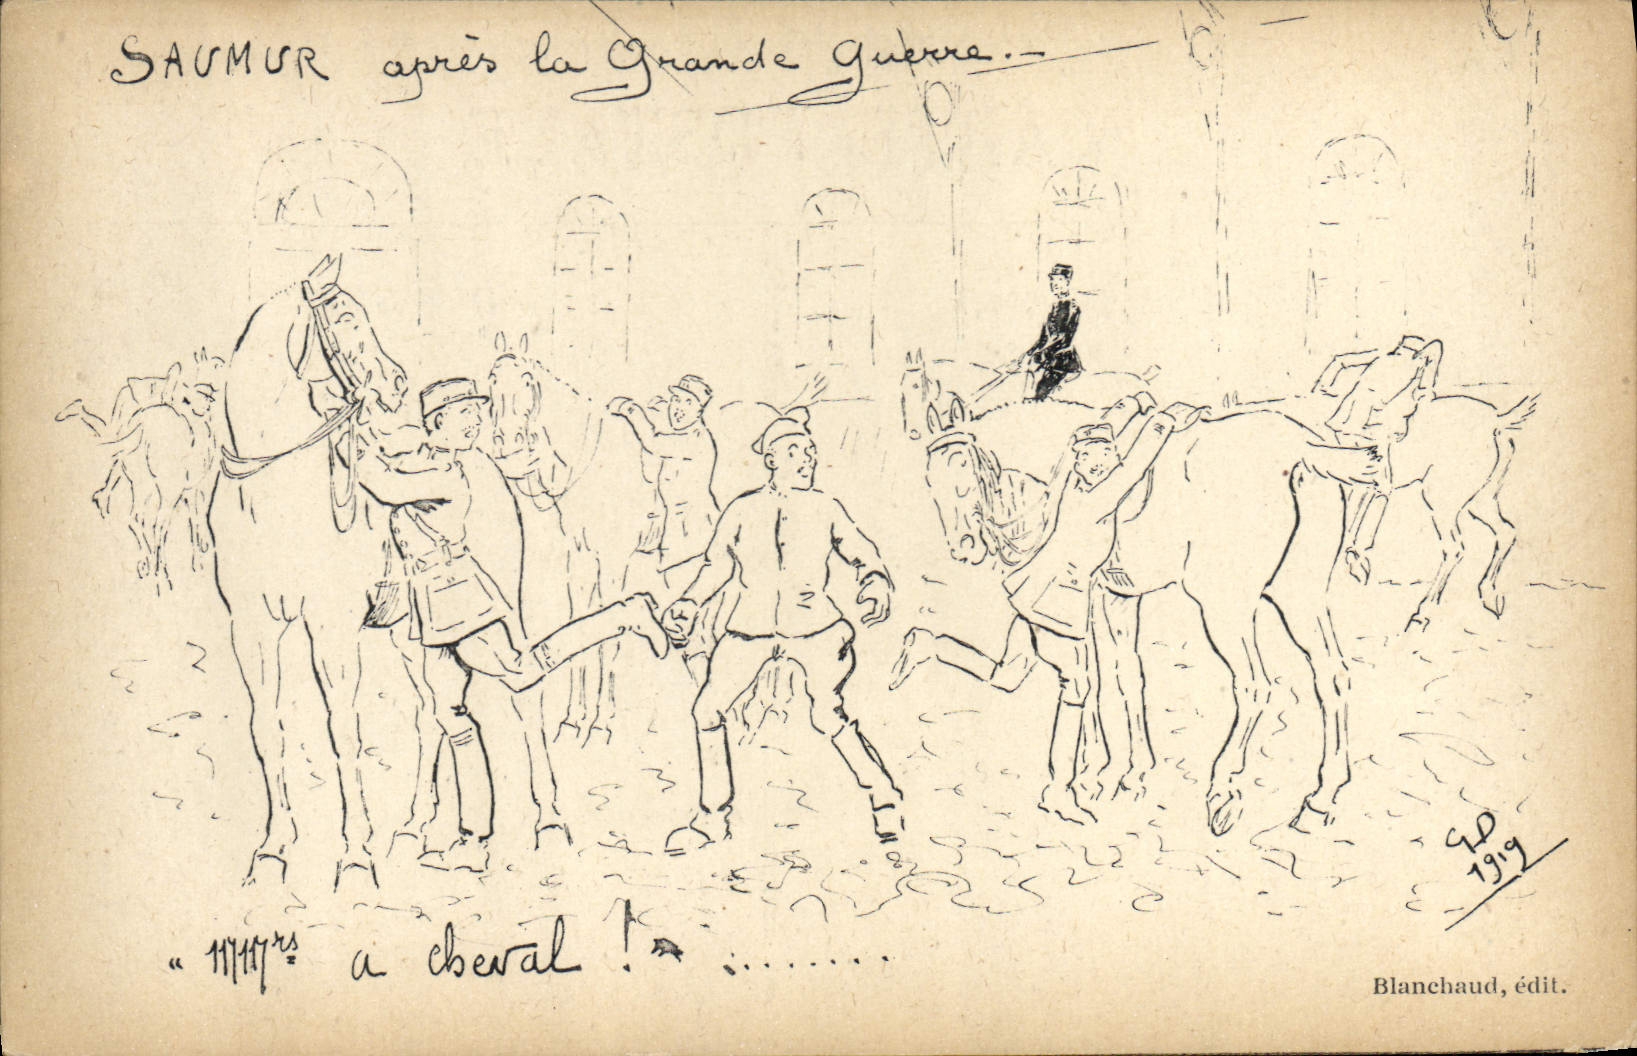 SAUMUR après la Grande Guerre.-
" MMrs a cheval ! " :........
GD
1919
Blanchaud, édit.